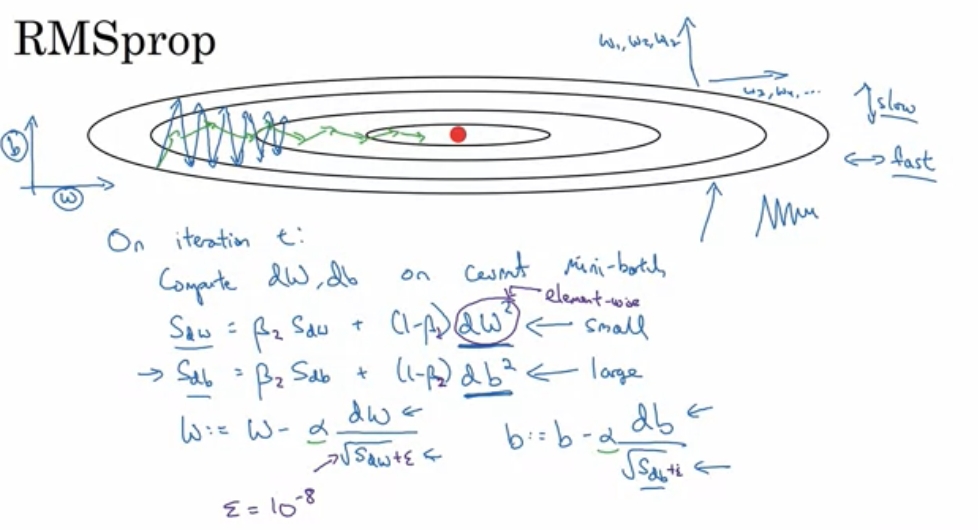 RMSprop
w₁, w₂, w₂
w₃, w₄, ...
slow
fast
b
w
On iteration t:
Compute dW, db on current mini-batch
element-wise
S_dw = β₂ S_dw + (1-β₂) dW² ← small
→ S_db = β₂ S_db + (1-β₂) db² ← large
W := W - α dW/√S_dw+ε ←
b := b - α db/√S_db+ε ←
ε = 10⁻⁸